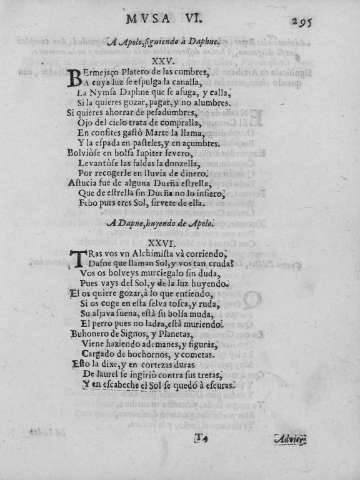 MVSA VI. 295
A Apolo, siguiendo à Daphne.
XXV.
BErmejaço Platero de las cumbres,
A cuya luz se espulga la canalla,
La Nymfa Daphne que se afufa, y calla,
Si la quieres gozar, pagar, y no alumbres.
Si quieres ahorrar de pesadumbres,
Ojo del cielo trata de compralla,
En confites gastò Marte la llama,
Y la espada en pasteles, y en açumbres.
Bolviòse en bolsa Iupiter severo,
Levantòse las faldas la donzella,
Por recogerle en lluvia de dinero.
Astucia fue de alguna Dueña estrella,
Que de estrella sin Dueña no lo infiero;
Febo pues eres Sol, sirvete de ella.
A Dapne, huyendo de Apolo.
XXVI.
TRas vos vn Alchimista và corriendo,
Dafne que llaman Sol, y vos tan cruda?
Vos os bolveys murciegalo sin duda,
Pues vays del Sol, y de la luz huyendo.
El os quiere gozar, à lo que entiendo,
Si os coge en esta selva tosca, y ruda,
Su aljava suena, està su bolsa muda,
El perro pues no ladra, està muriendo.
Buhonero de Signos, y Planetas,
Viene haziendo ademanes, y figuras,
Cargado de bochornos, y cometas.
Esto la dixe, y en cortezas duras
De laurel se ingiriò contra sus tretas,
Y en escabeche el Sol se quedò à escuras.
T4